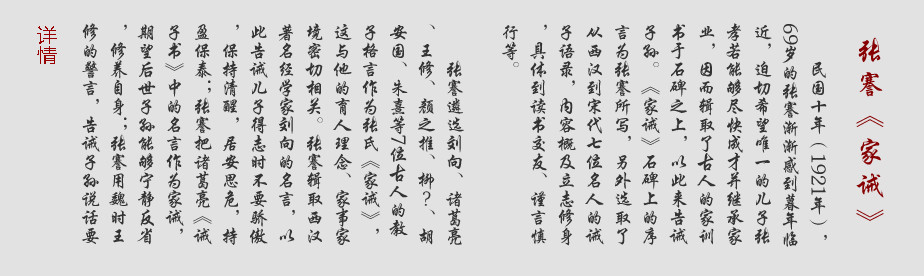 张謇《家诫》
民国十年（1921年），
69岁的张謇渐渐感到暮年临
近，迫切希望唯一的儿子张
孝若能够尽快成才并继承家
业，因而辑取了古人的家训
书于石碑之上，以此来告诫
子孙。《家诫》石碑上的序
言为张謇所写，另外选取了
从西汉到宋代七位名人的诫
子语录，内容概及立志修身
，具体到读书交友、谨言慎
行等。
张謇遴选刘向、诸葛亮
、王修、颜之推、柳？、胡
安国、朱熹等7位古人的教
子格言作为张氏《家诫》，
这与他的育人理念、家事家
境密切相关。张謇辑取西汉
著名经学家刘向的名言，以
此告诫儿子得志时不要骄傲
，保持清醒，居安思危，持
盈保泰；张謇把诸葛亮《诫
子书》中的名言作为家诫，
期望后世子孙能够宁静反省
，修养自身；张謇用魏时王
修的警言，告诫子孙说话要
详情